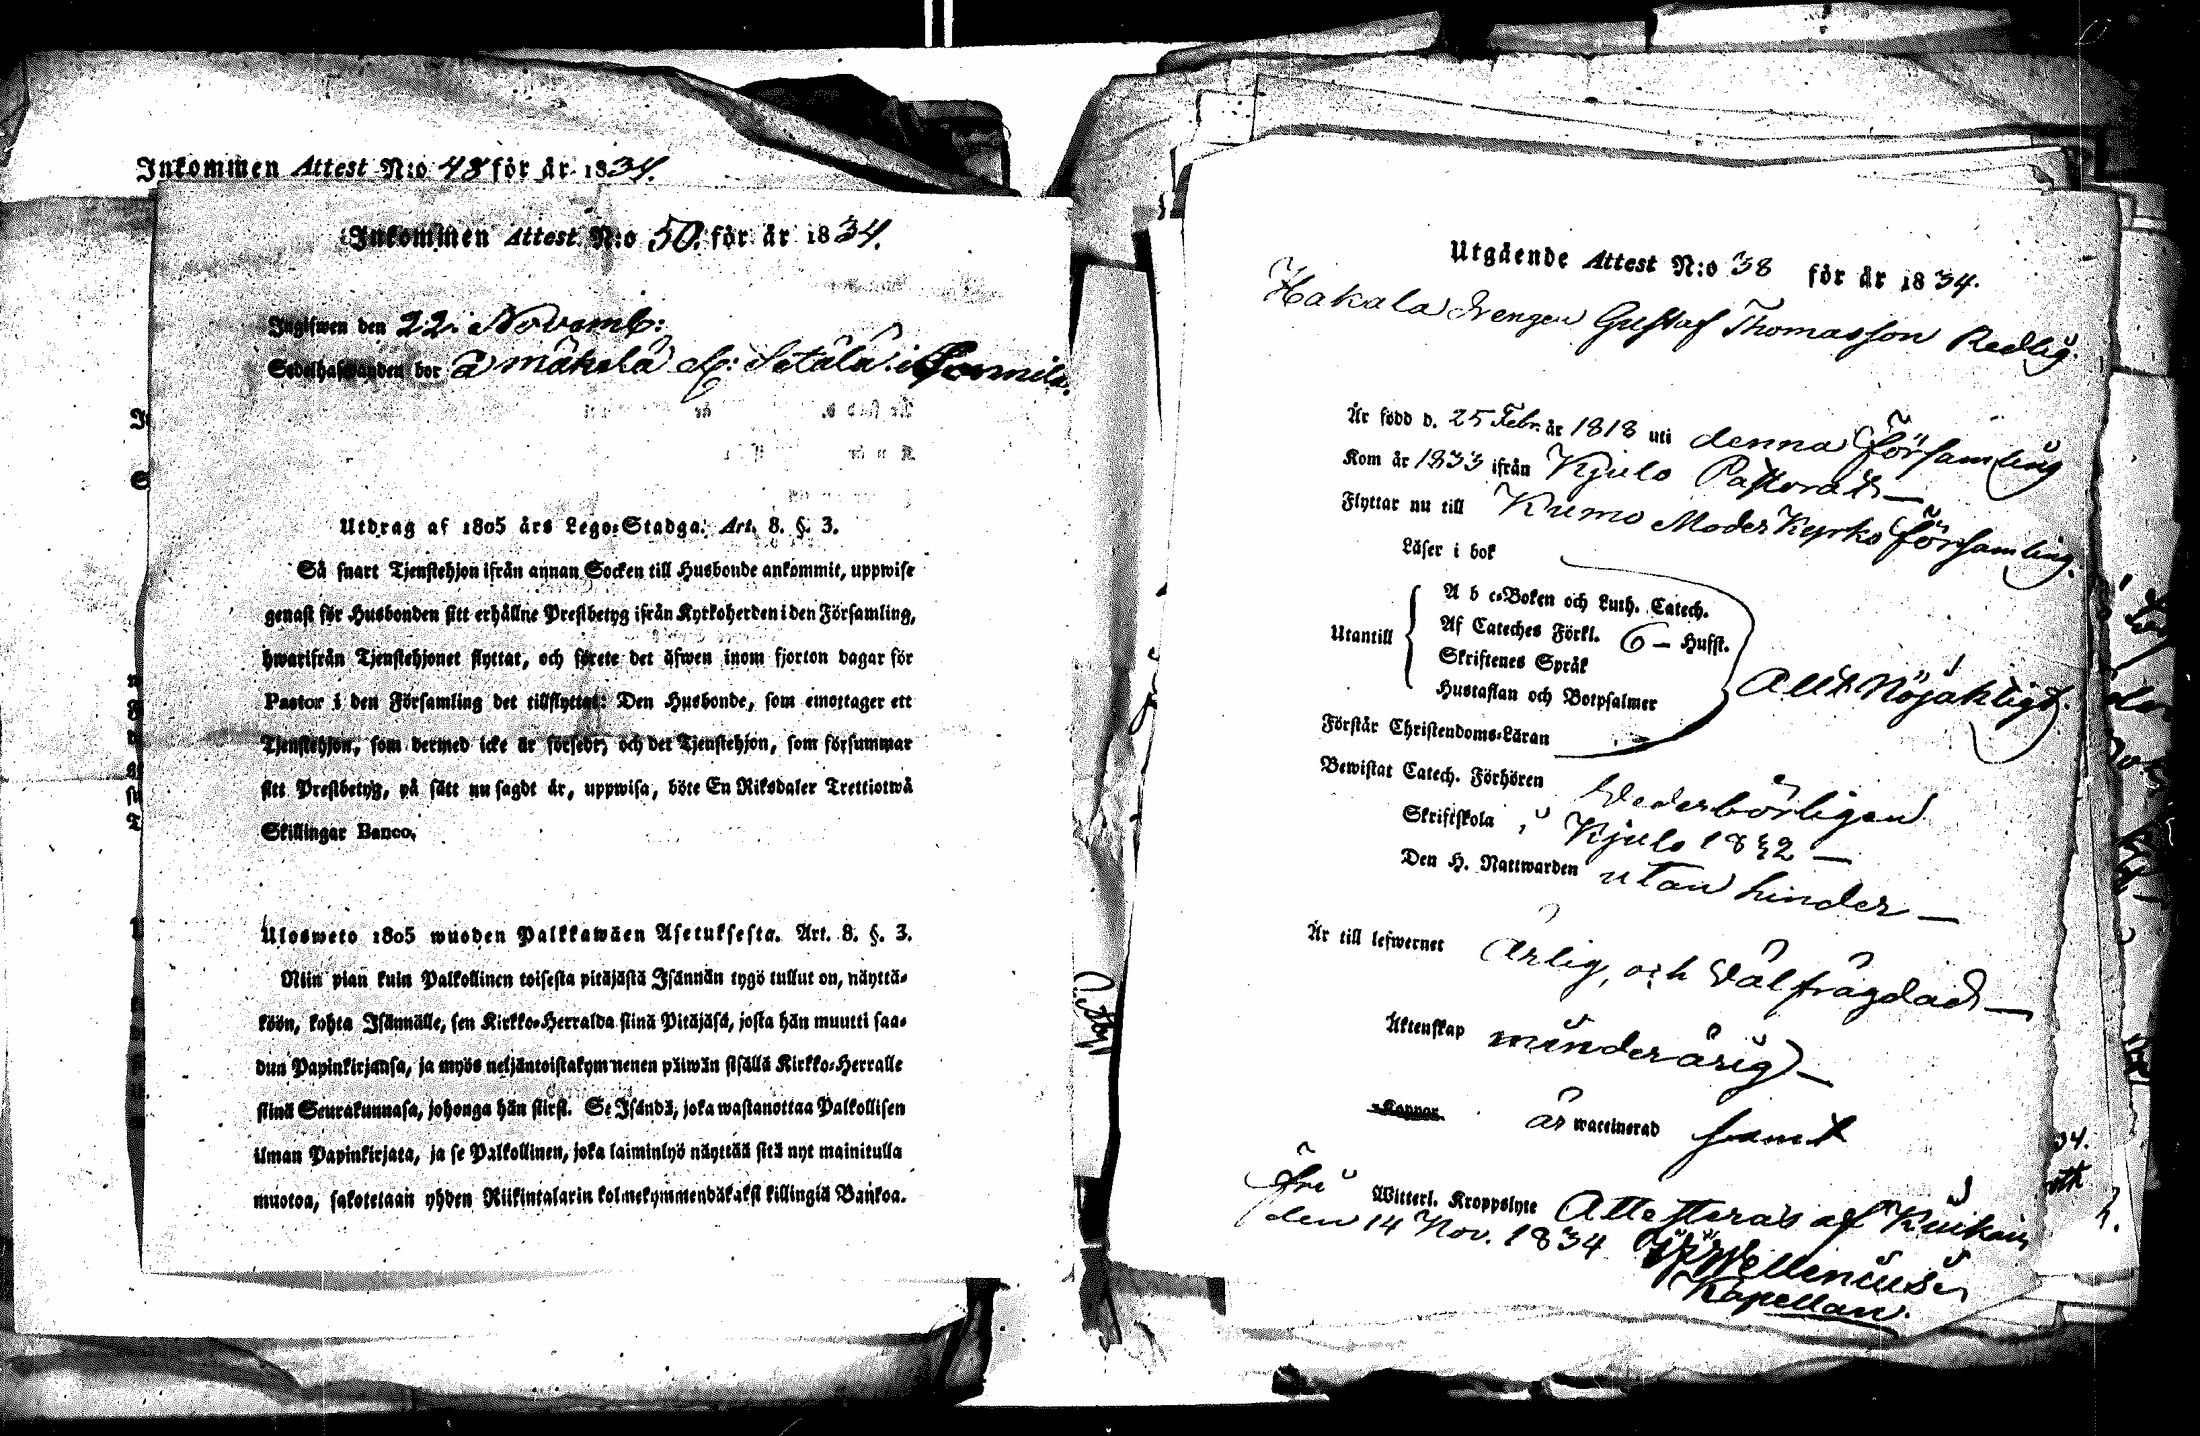 Inkommen Attest N:o 48 för år 1834.
Inkommen Attest N:o 50. för år 1834.
Ingifwen den 22. Novemb:
Sedelhafwanden bor å mäkelä
Utdrag af 1805 års Lego-Stadga. Art. 8. §. 3.
Så snart Tjenstehjon ifrån annan Socken till Husbonde ankommit, uppwise
genast för Husbonden sitt erhållne Prestbetyg ifrån Kyrkoherden i den Församling,
hwarifrån Tjenstehjonet flyttat, och förete det äfwen inom fjorton dagar för
Pastor i den Församling det tillflyttat: Den Husbonde, som emottager ett
Tjenstehjon, som dermed icke är försedt, och det Tjenstehjon, som försummar
sitt Prestbetyg, på sätt nu sagdt är, uppwisa, böte En Riksdaler Trettiotwå
Skillingar Banco.
Ulosweto 1805 wuoden Palkkawäen Asetuksesta. Art. 8. §. 3.
Niin pian kuin Palkollinen toisesta pitäjästä Isännän tygö tullut on, näyttä-
köön, kohta Isännälle, sen Kirkko-Herralda siinä Pitäjäsä, josta hän muutti saa-
dun Papinkirjansa, ja myös neljäntoistakymmenen päiwän sisällä Kirkko-Herralle
siinä Seurakunnasa, johonga hän siirsi. Se Isändä, joka wastanottaa Palkollisen
ilman Papinkirjata, ja se Palkollinen, joka laiminlyö näyttää sitä nyt mainitulla
muotoa, sakotetaan yhden Riikintalarin kolmekymmendäkaksi killingiä Bankoa.
Utgående Attest N:o 38 för år 1834.
Hakala Drengen Gustaf Thomasson Redlig.
Är född d. 25 Febr. år 1818 uti denna Församling
Kom år 1833 ifrån Kjulo Pastorat —
Flyttar nu till Kumo Moder Kyrko Församling.
Läser i bok
Utantill
A b c-Boken och Luth. Catech.
Af Cateches Förkl. 6 — Hufst.
Skriftenes Språk
Hustaflan och Botpsalmer
Allt Nöjaktigt.
Förstår Christendoms-Läran
Bewistat Catech. Förhören Vederbörligen
Skriftskola i Kjulo 1832 —
Den H. Nattwarden utan hinder —
Är till lefwernet Ärlig, och Välfrägdad —
Äktenskap minderårig —
Koppor är waccinerad samt
fri Witterl. Kroppslyte Attesteras af Kuikain
den 14 Nov. 1834
Kapellan.